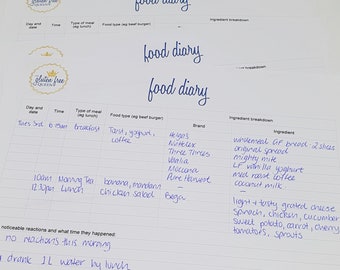 food diary
Ingredient breakdown
Day and date Time Type of meal (eg lunch) Food type (eg beef burger)
food diary
gluten free
food diary
Day and date Time Type of meal (eg lunch) Food type (eg beef burger) Brand Ingredient
Tues 3rd Breakfast Toast, yoghurt, coffee
Helga's wholemeal GF bread 2 slices
Nuttelex original spread
Three Threes mighty milk
Vaalia LF vanilla yoghurt
Moccona med roast coffee
Pure Harvest coconut milk
10am Morning Tea banana, mandarin — —
12:30pm Lunch chicken salad Bega light + tasty grated cheese
spinach, chicken, cucumber
sweet potato, carrot, cherry
tomatoes, sprouts
noticeable reactions and what time they happened:
no reactions this morning
drank 1L water by lunch